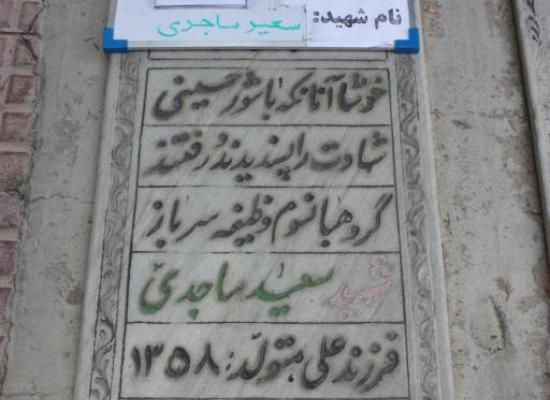 نام شهید: سعید ساجدی
خوشا آنانکه با شور حسینی
شهادت را پسندیدند رفتند
گروهبانسوم وظیفه سرباز
شهید سعید ساجدی
فرزند علی متولد: ۱۳۵۸